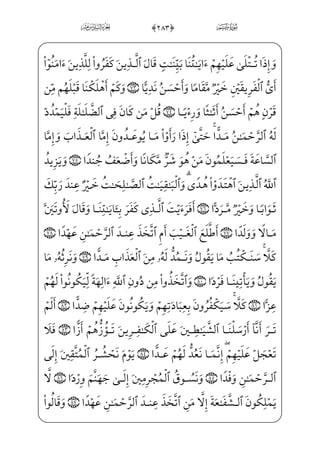 ﴿٢٨٣﴾
وَإِذَا تُتْلَىٰ عَلَيْهِمْ ءَايَٰتُنَا بَيِّنَٰتٍ قَالَ ٱلَّذِينَ كَفَرُوا۟ لِلَّذِينَ ءَامَنُوٓا۟
أَىُّ ٱلْفَرِيقَيْنِ خَيْرٌ مَّقَامًا وَأَحْسَنُ نَدِيًّا ۝ وَكَمْ أَهْلَكْنَا قَبْلَهُم مِّن
قَرْنٍ هُمْ أَحْسَنُ أَثَٰثًا وَرِءْيًا ۝ قُلْ مَن كَانَ فِى ٱلضَّلَٰلَةِ فَلْيَمْدُدْ
لَهُ ٱلرَّحْمَٰنُ مَدًّا ۚ حَتَّىٰٓ إِذَا رَأَوْا۟ مَا يُوعَدُونَ إِمَّا ٱلْعَذَابَ وَإِمَّا
ٱلسَّاعَةَ فَسَيَعْلَمُونَ مَنْ هُوَ شَرٌّ مَّكَانًا وَأَضْعَفُ جُندًا ۝ وَيَزِيدُ
ٱللَّهُ ٱلَّذِينَ ٱهْتَدَوْا۟ هُدًى ۗ وَٱلْبَٰقِيَٰتُ ٱلصَّٰلِحَٰتُ خَيْرٌ عِندَ رَبِّكَ
ثَوَابًا وَخَيْرٌ مَّرَدًّا ۝ أَفَرَءَيْتَ ٱلَّذِى كَفَرَ بِـَٔايَٰتِنَا وَقَالَ لَأُوتَيَنَّ
مَالًا وَوَلَدًا ۝ أَطَّلَعَ ٱلْغَيْبَ أَمِ ٱتَّخَذَ عِندَ ٱلرَّحْمَٰنِ عَهْدًا ۝
كَلَّا ۚ سَنَكْتُبُ مَا يَقُولُ وَنَمُدُّ لَهُۥ مِنَ ٱلْعَذَابِ مَدًّا ۝ وَنَرِثُهُۥ مَا
يَقُولُ وَيَأْتِينَا فَرْدًا ۝ وَٱتَّخَذُوا۟ مِن دُونِ ٱللَّهِ ءَالِهَةً لِّيَكُونُوا۟ لَهُمْ
عِزًّا ۝ كَلَّا ۚ سَيَكْفُرُونَ بِعِبَادَتِهِمْ وَيَكُونُونَ عَلَيْهِمْ ضِدًّا ۝ أَلَمْ
تَرَ أَنَّآ أَرْسَلْنَا ٱلشَّيَٰطِينَ عَلَى ٱلْكَٰفِرِينَ تَؤُزُّهُمْ أَزًّا ۝ فَلَا
تَعْجَلْ عَلَيْهِمْ ۖ إِنَّمَا نَعُدُّ لَهُمْ عَدًّا ۝ يَوْمَ نَحْشُرُ ٱلْمُتَّقِينَ إِلَى
ٱلرَّحْمَٰنِ وَفْدًا ۝ وَنَسُوقُ ٱلْمُجْرِمِينَ إِلَىٰ جَهَنَّمَ وِرْدًا ۝ لَّا
يَمْلِكُونَ ٱلشَّفَٰعَةَ إِلَّا مَنِ ٱتَّخَذَ عِندَ ٱلرَّحْمَٰنِ عَهْدًا ۝ وَقَالُوا۟